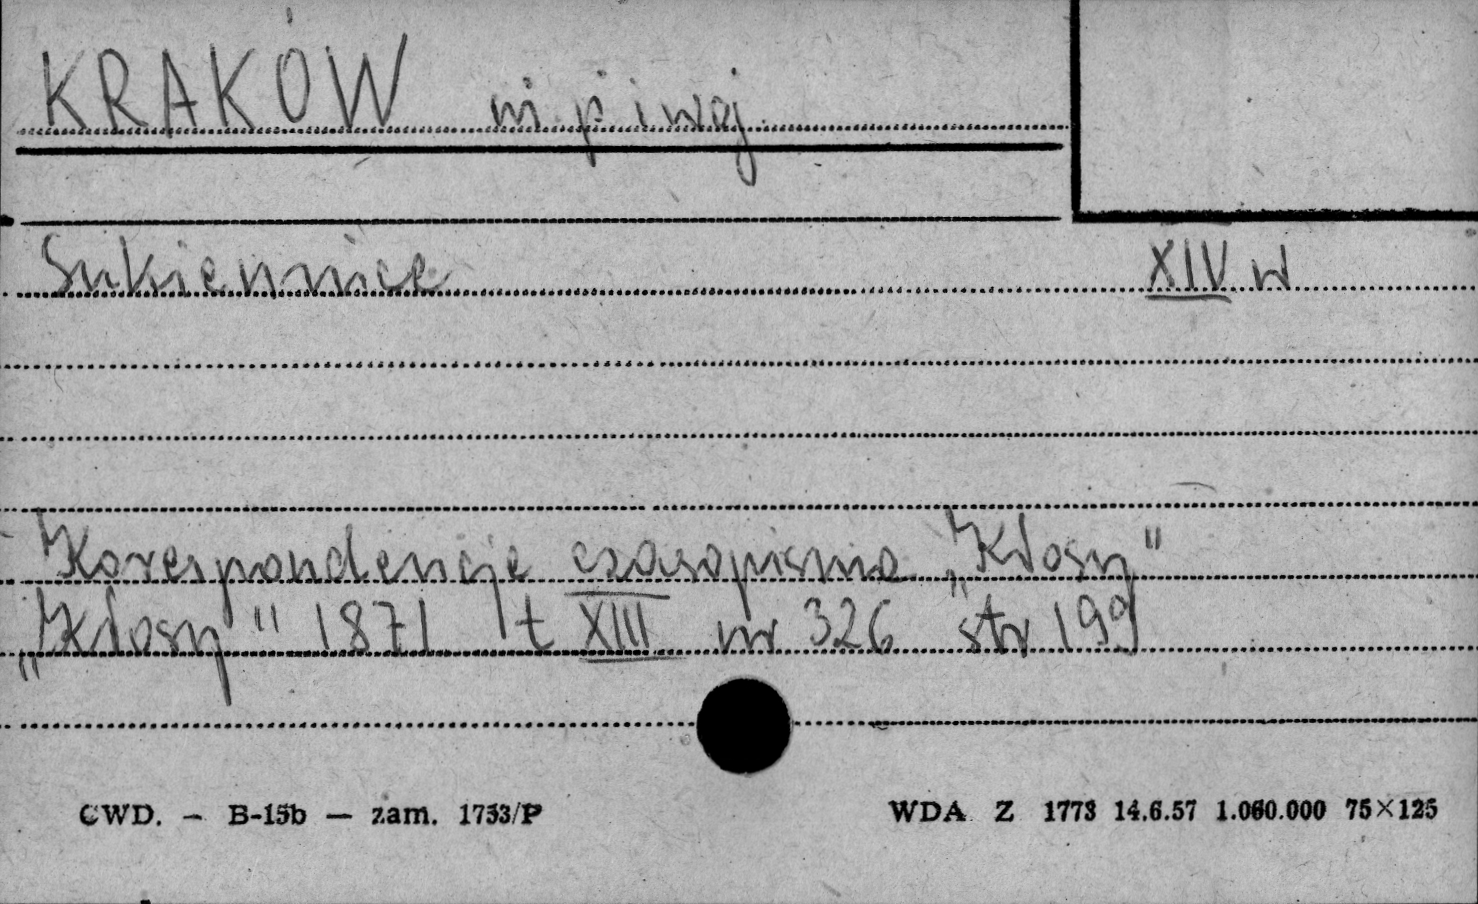 KRAKÓW m. p i woj.
Sukiennice XIV w
Korespondencje czasopisma „Kłosy"
„Kłosy" 1871 t XIII nr 326 str 199
CWD. — B-15b — zam. 1753/P
WDA Z 1773 14.6.57 1.000.000 75×125